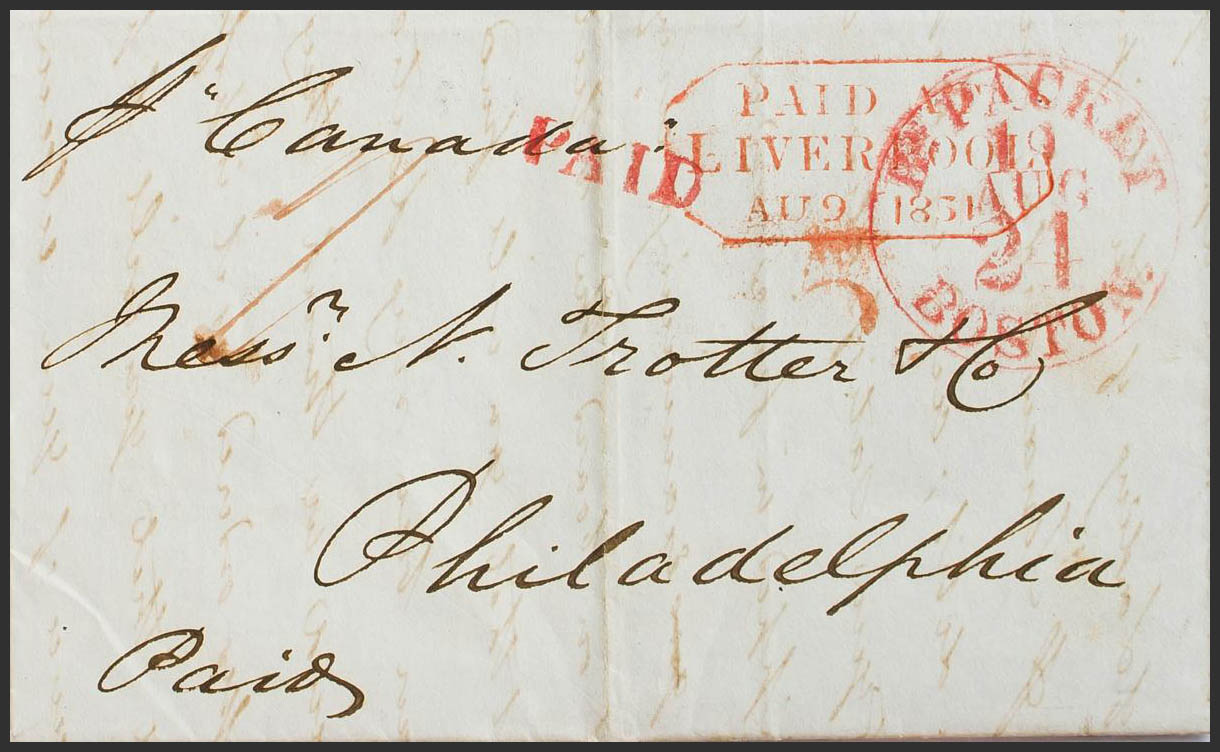 pr "Canada"
PAID
PAID AT
LIVERPOOL
AU 9 1851
BR PACKET
19
AUG
21
BOSTON
Messrs N. Trotter & Co
Philadelphia
Paid